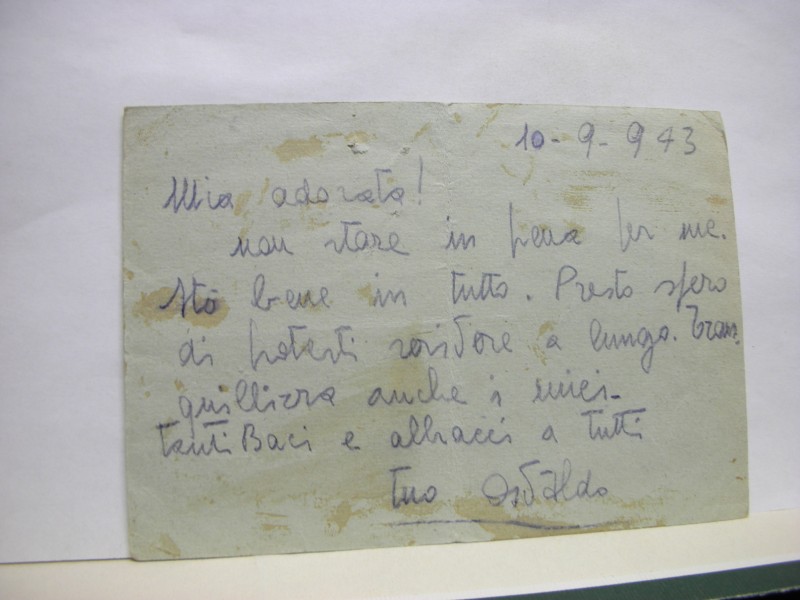 10-9-943
Mia adorata!
non stare in pena per me.
Stò bene in tutto. Presto spero
di poterti a lungo. Tran-
quillizza anche i miei-
tanti Baci e abbracci a tutti
tuo Osvaldo